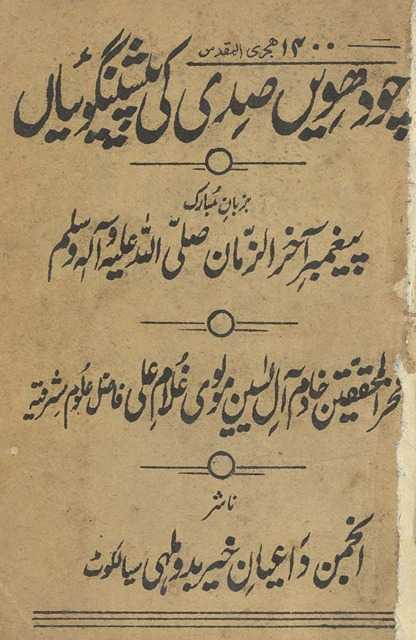 ۱۴۰۰ ہجری المقدس
چودھویں صدی کی پیشینگوئیاں
بزبانِ مُبارک
پیغمبرِ آخر الزّمان صلّی اللہ علیہ وآلہٖ وسلم
المحققین خادم آلِ یٰسین مولوی غُلام علی فاضل علومِ شرقیہ
ناشر
انجمن داعیانِ خیر بدوملہی سیالکوٹ